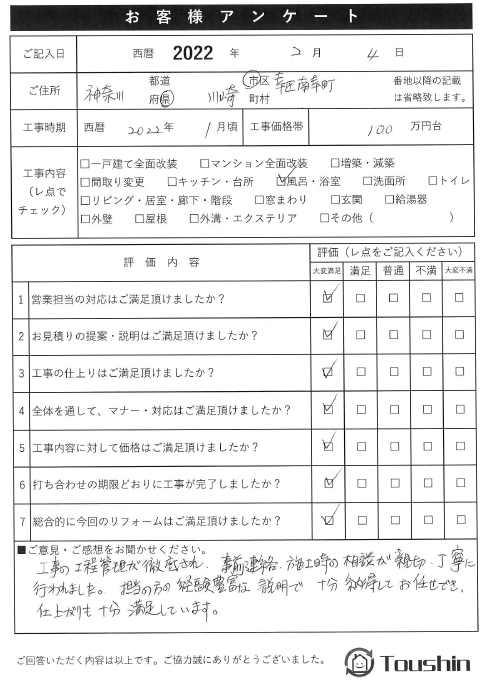 お客様アンケート
ご記入日 西暦 2022 年 2 月 4 日
ご住所 神奈川 都道府県 川崎 市区町村 幸区南幸町 番地以降の記載は省略致します。
工事時期 西暦 2022 年 1 月頃 工事価格帯 100 万円台
工事内容（レ点でチェック）
□一戸建て全面改装 □マンション全面改装 □増築・減築
□間取り変更 □キッチン・台所 ☑風呂・浴室 □洗面所 □トイレ
□リビング・居室・廊下・階段 □窓まわり □玄関 □給湯器
□外壁 □屋根 □外溝・エクステリア □その他（ ）
評価内容 評価（レ点をご記入ください）
大変満足 満足 普通 不満 大変不満
1 営業担当の対応はご満足頂けましたか？ ☑ □ □ □ □
2 お見積りの提案・説明はご満足頂けましたか？ ☑ □ □ □ □
3 工事の仕上りはご満足頂けましたか？ ☑ □ □ □ □
4 全体を通して、マナー・対応はご満足頂けましたか？ ☑ □ □ □ □
5 工事内容に対して価格はご満足頂けましたか？ ☑ □ □ □ □
6 打ち合わせの期限どおりに工事が完了しましたか？ ☑ □ □ □ □
7 総合的に今回のリフォームはご満足頂けましたか？ ☑ □ □ □ □
■ご意見・ご感想をお聞かせください。
工事の工程管理が徹底され、事前連絡、施工時の相談が親切、丁寧に
行われました。担当の方の経験豊富な説明で十分納得してお任せでき、
仕上がりも十分満足しています。
ご回答いただく内容は以上です。ご協力誠にありがとうございました。
Toushin